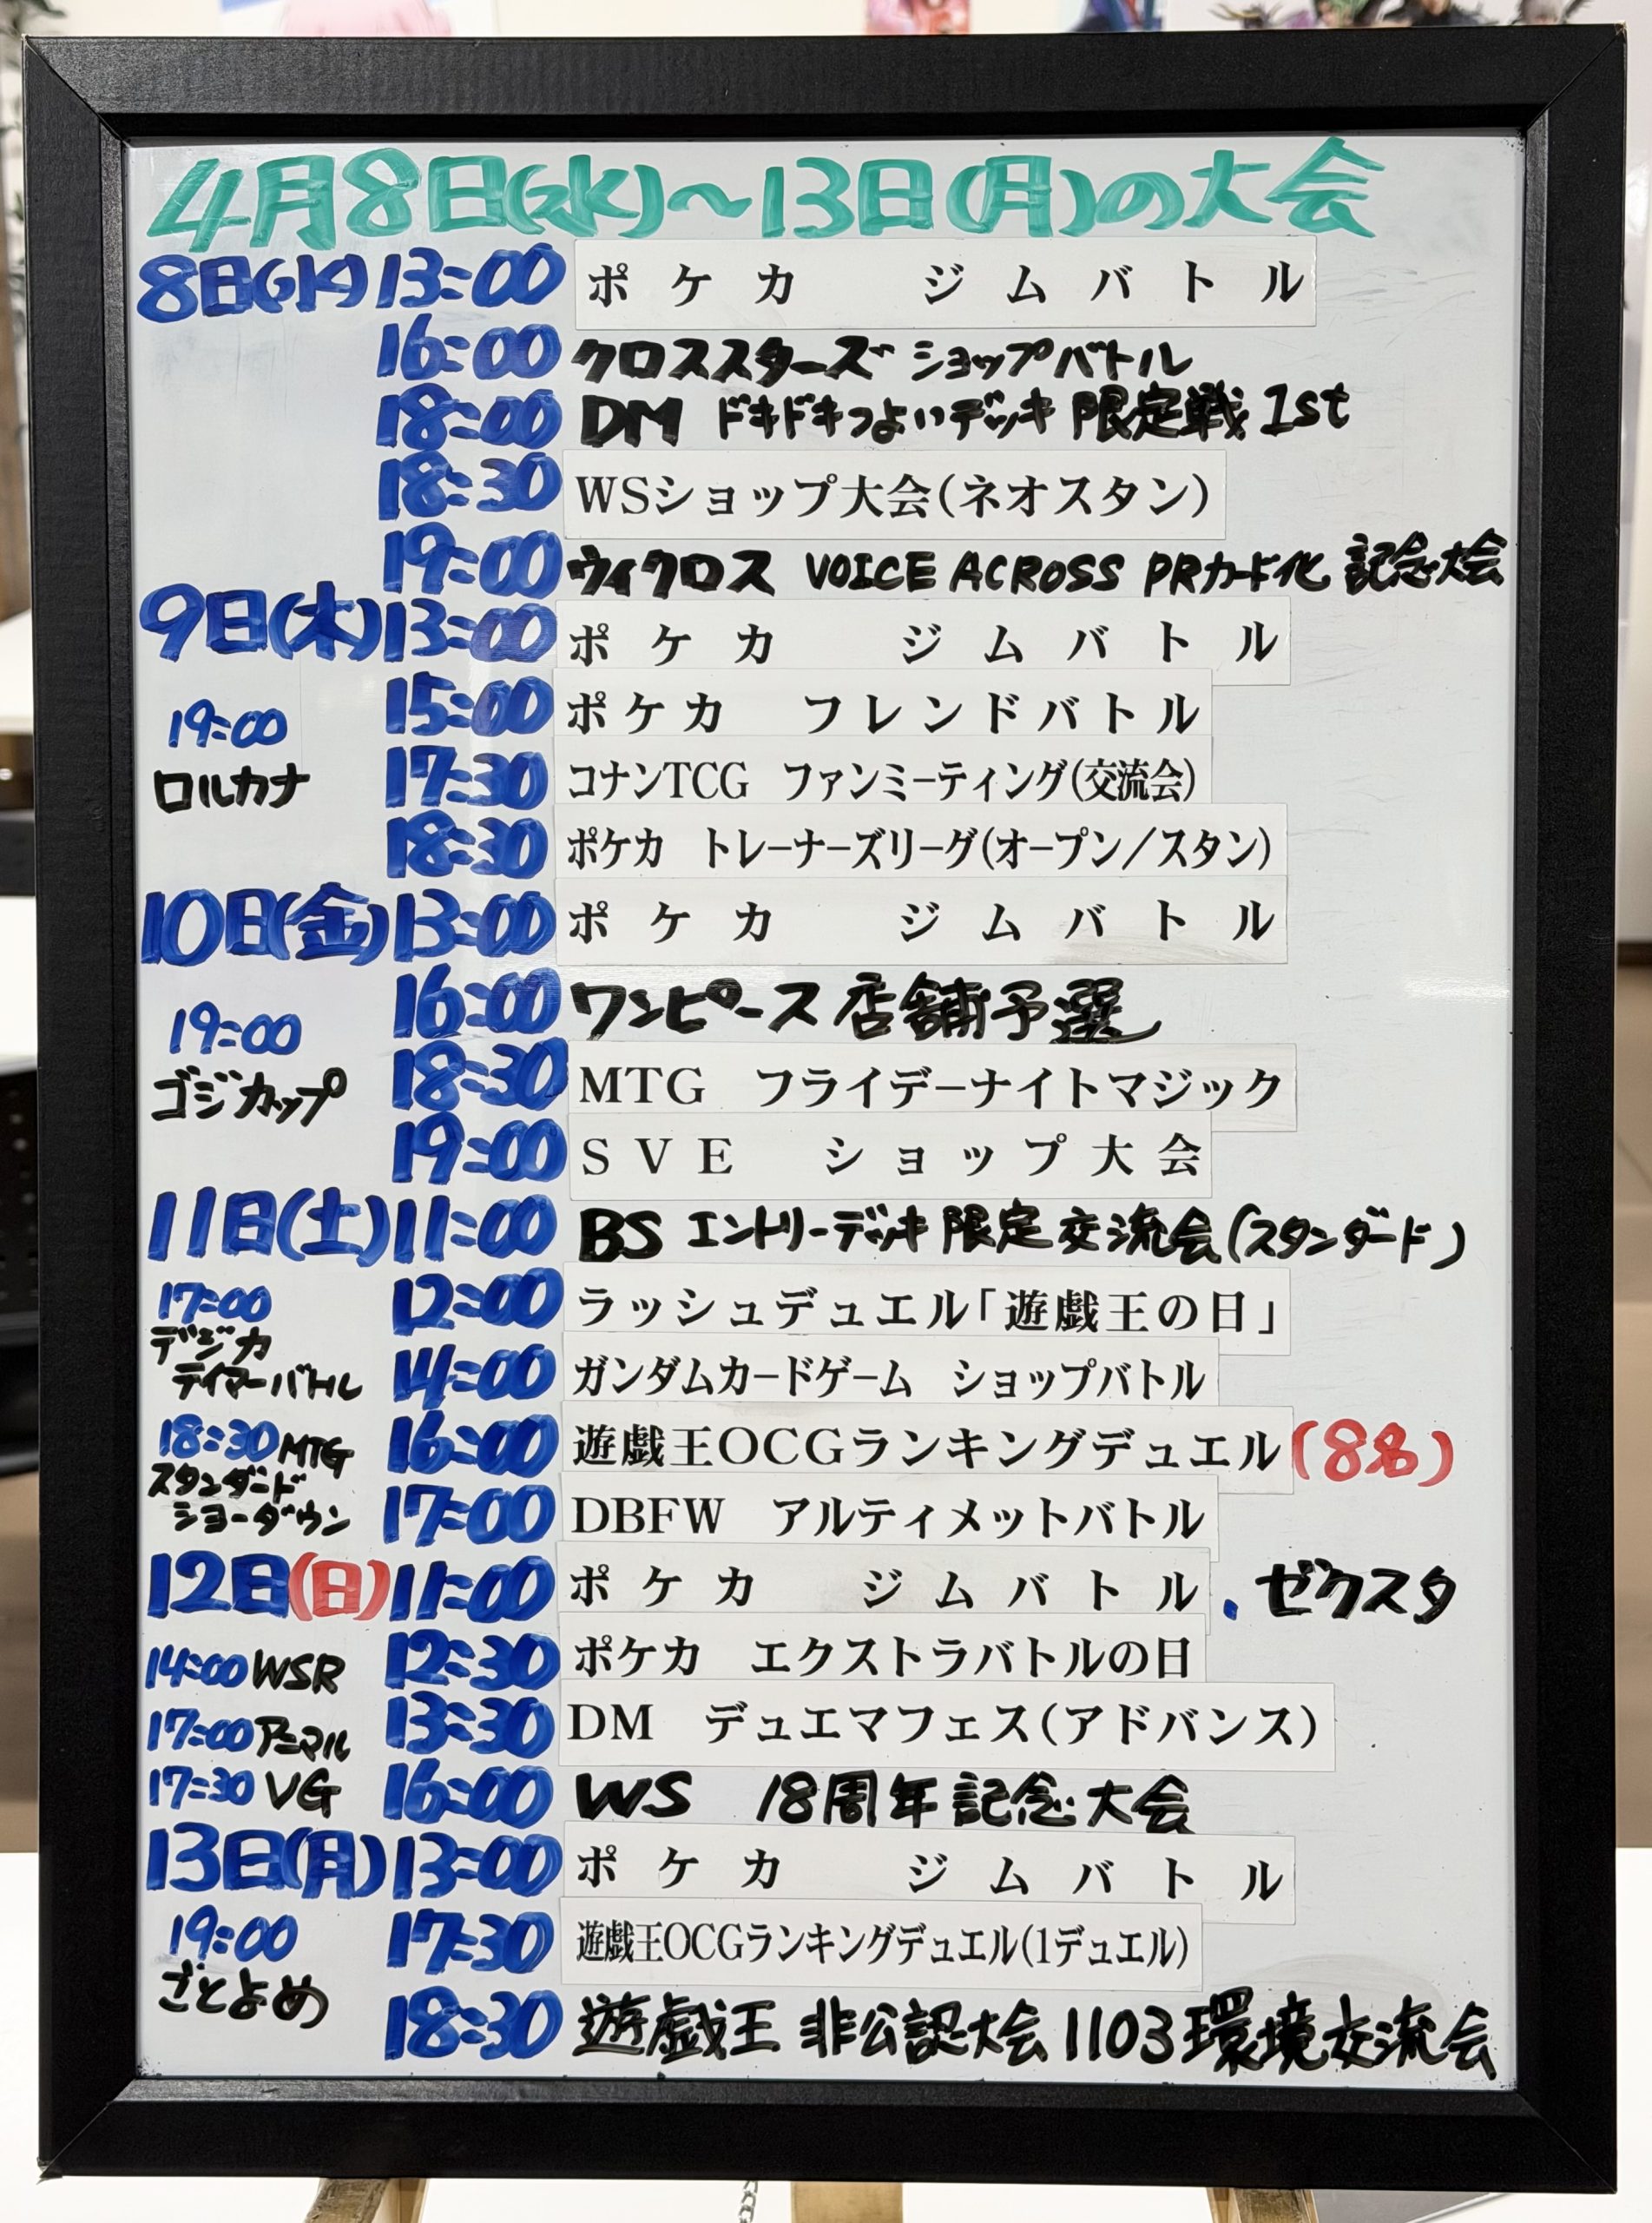 4月8日(水)～13日(月)の大会
8日(水) 13:00 ポケカ ジムバトル
16:00 クロススターズ ショップバトル
18:00 DM ドキドキつよいデッキ 限定戦 1st
18:30 WSショップ大会(ネオスタン)
19:00 ウィクロス VOICE ACROSS PRカード化 記念大会
9日(木) 13:00 ポケカ ジムバトル
15:00 ポケカ フレンドバトル
19:00
ロルカナ
17:30 コナンTCG ファンミーティング(交流会)
18:30 ポケカ トレーナーズリーグ(オープン/スタン)
10日(金) 13:00 ポケカ ジムバトル
16:00 ワンピース 店舗予選
19:00
ゴジカップ
18:30 MTG フライデーナイトマジック
19:00 SVE ショップ大会
11日(土) 11:00 BS エントリーデッキ 限定交流会(スタンダード)
12:00 ラッシュデュエル「遊戯王の日」
17:00
デジカ
テイマーバトル
14:00 ガンダムカードゲーム ショップバトル
16:00 遊戯王OCGランキングデュエル(8名)
18:30 MTG
スタンダード
ショーダウン
17:00 DBFW アルティメットバトル
12日(日) 11:00 ポケカ ジムバトル . ゼクスタ
12:30 ポケカ エクストラバトルの日
14:00 WSR
13:30 DM デュエマフェス(アドバンス)
17:00 アニマル
16:00 WS 18周年記念大会
17:30 VG
13日(月) 13:00 ポケカ ジムバトル
17:30 遊戯王OCGランキングデュエル(1デュエル)
19:00
ごとよめ
18:30 遊戯王 非公認大会 1103環境交流会